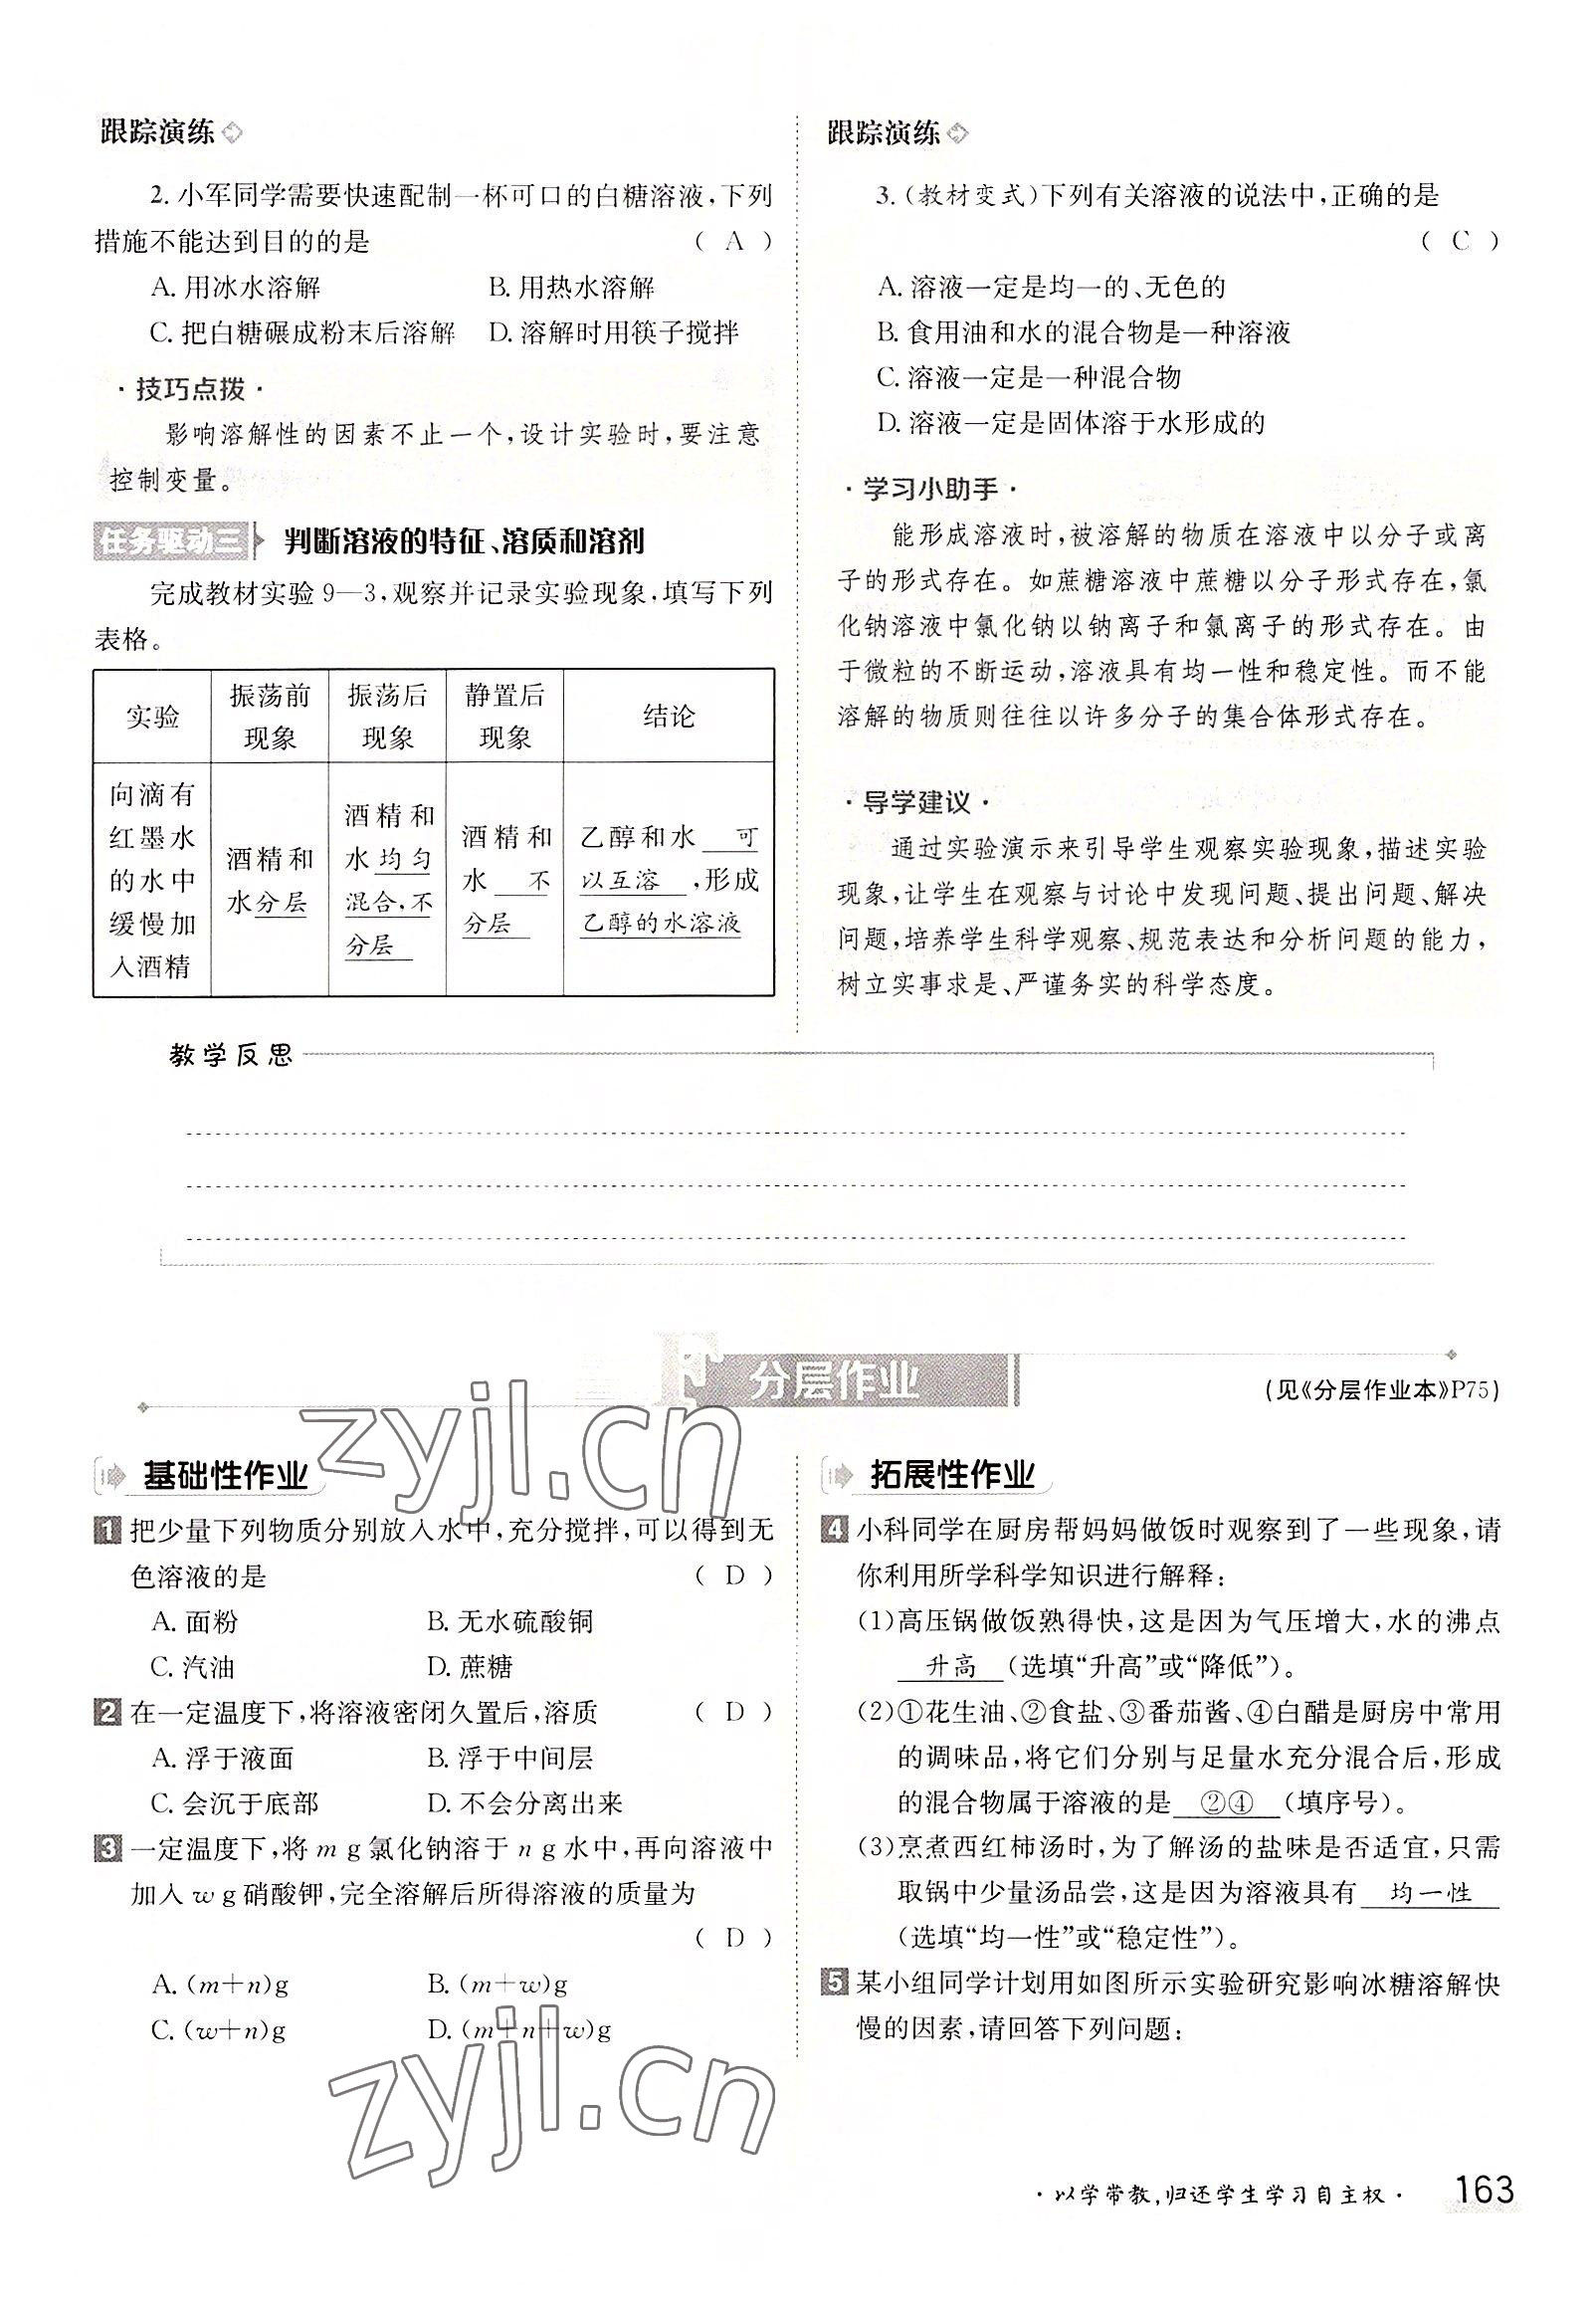 跟踪演练
2. 小军同学需要快速配制一杯可口的白糖溶液,下列
措施不能达到目的的是 ( A )
A. 用冰水溶解 B. 用热水溶解
C. 把白糖碾成粉末后溶解 D. 溶解时用筷子搅拌
·技巧点拨·
影响溶解性的因素不止一个,设计实验时,要注意
控制变量。
任务驱动三 判断溶液的特征、溶质和溶剂
完成教材实验9—3,观察并记录实验现象,填写下列
表格。
实验 振荡前现象 振荡后现象 静置后现象 结论
向滴有红墨水的水中缓慢加入酒精 酒精和水分层 酒精和水均匀混合,不分层 酒精和水 不分层 乙醇和水 可以互溶 ,形成乙醇的水溶液
跟踪演练
3. (教材变式)下列有关溶液的说法中,正确的是
( C )
A. 溶液一定是均一的、无色的
B. 食用油和水的混合物是一种溶液
C. 溶液一定是一种混合物
D. 溶液一定是固体溶于水形成的
·学习小助手·
能形成溶液时,被溶解的物质在溶液中以分子或离
子的形式存在。如蔗糖溶液中蔗糖以分子形式存在,氯
化钠溶液中氯化钠以钠离子和氯离子的形式存在。由
于微粒的不断运动,溶液具有均一性和稳定性。而不能
溶解的物质则往往以许多分子的集合体形式存在。
·导学建议·
通过实验演示来引导学生观察实验现象,描述实验
现象,让学生在观察与讨论中发现问题、提出问题、解决
问题,培养学生科学观察、规范表达和分析问题的能力,
树立实事求是、严谨务实的科学态度。
教学反思
F 分层作业 (见《分层作业本》P75)
基础性作业
1 把少量下列物质分别放入水中,充分搅拌,可以得到无
色溶液的是 ( D )
A. 面粉 B. 无水硫酸铜
C. 汽油 D. 蔗糖
2 在一定温度下,将溶液密闭久置后,溶质 ( D )
A. 浮于液面 B. 浮于中间层
C. 会沉于底部 D. 不会分离出来
3 一定温度下,将 m g 氯化钠溶于 n g 水中,再向溶液中
加入 w g 硝酸钾,完全溶解后所得溶液的质量为
( D )
A. (m+n)g B. (m+w)g
C. (w+n)g D. (m+n+w)g
拓展性作业
4 小科同学在厨房帮妈妈做饭时观察到了一些现象,请
你利用所学科学知识进行解释:
(1)高压锅做饭熟得快,这是因为气压增大,水的沸点
升高 (选填“升高”或“降低”)。
(2)①花生油、②食盐、③番茄酱、④白醋是厨房中常用
的调味品,将它们分别与足量水充分混合后,形成
的混合物属于溶液的是 ②④ (填序号)。
(3)烹煮西红柿汤时,为了解汤的盐味是否适宜,只需
取锅中少量汤品尝,这是因为溶液具有 均一性
(选填“均一性”或“稳定性”)。
5 某小组同学计划用如图所示实验研究影响冰糖溶解快
慢的因素,请回答下列问题:
zyjl.cn
zyjl.cn
·以学带教,归还学生学习自主权· 163